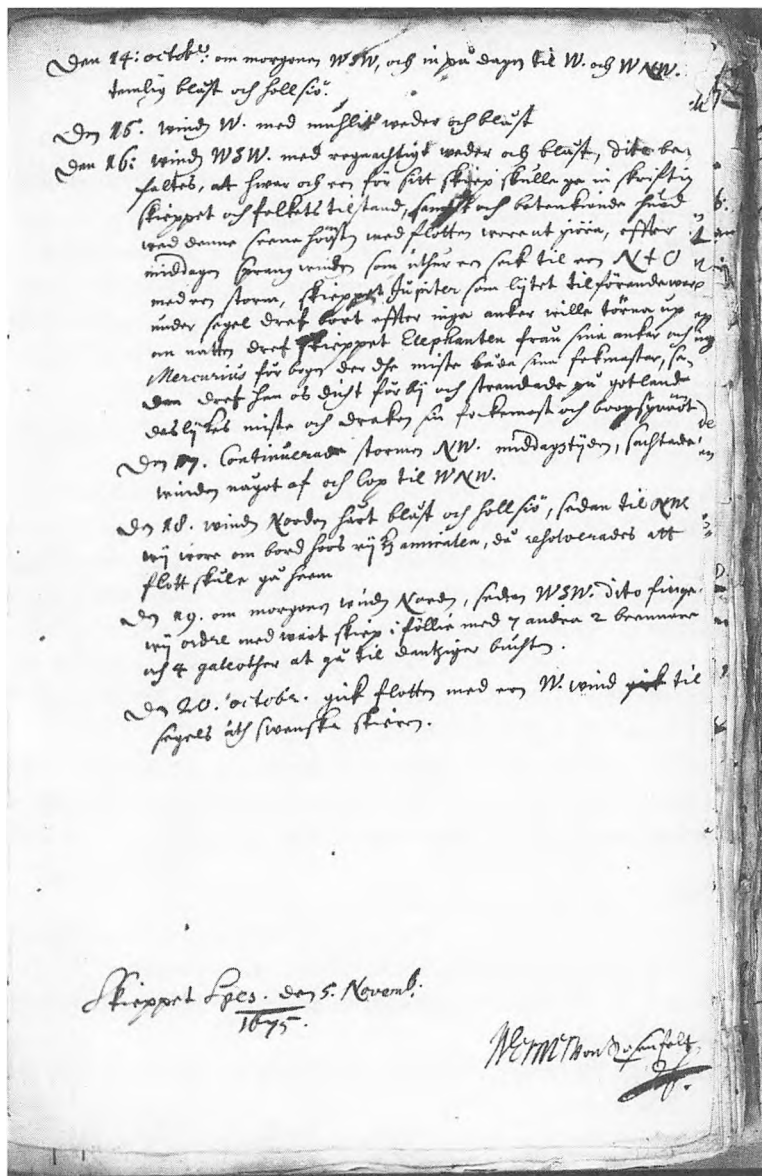 Den 14: octobr: om morgonen WSW, och in på dagen til W. och WNW.
temlig blåst och holl siö.
Den 15. winden W. med muhlit weder och blåst
Den 16: winden WSW. med regnachtigt weder och blåst, dito be-
faltes, at hwar och en för sitt skiep skulle ge in skriftlig
skieppet och folkets tilstand, samt och betenkiande huad
wed denne seena hösten med flotten woro at giöra, effter
middagen sprang winden som uthur en seck til en N t O
med en storm, skieppet Jupiter som lijtet tilförende war
under segel dref bort effter inga anker wille törna up
om natten dref skieppet Elephanten från sina anker och
Mercurius för bogen der dhe miste båda sina fekmaster, se-
dan dref han os dicht förbij och strandade på gotland
deslijkes miste och draken sin fockemast och boogspröt
Den 17. Continuerade stormen NW. middagstijden, sachtade
winden något af och lop til WNW.
Den 18. winden Norden hårt blåst och holl siö, sedan til NNW
wij wore om bord hoos rijkz amiralen, då resolverades att
flott skule gå heem
Den 19. om morgonen winden Norden, sedan WSW. dito finge
wij ordre med wårt skiep i föllie med 7 andra 2 brennare
och 4 gallother at gå til dantziger buchten.
Den 20. octobr. gick flotten med een W. wind til
segels åth swenske skieren.
Skieppet Spes. den 5. Novemb:
1675.
Werner von Rosenfelt